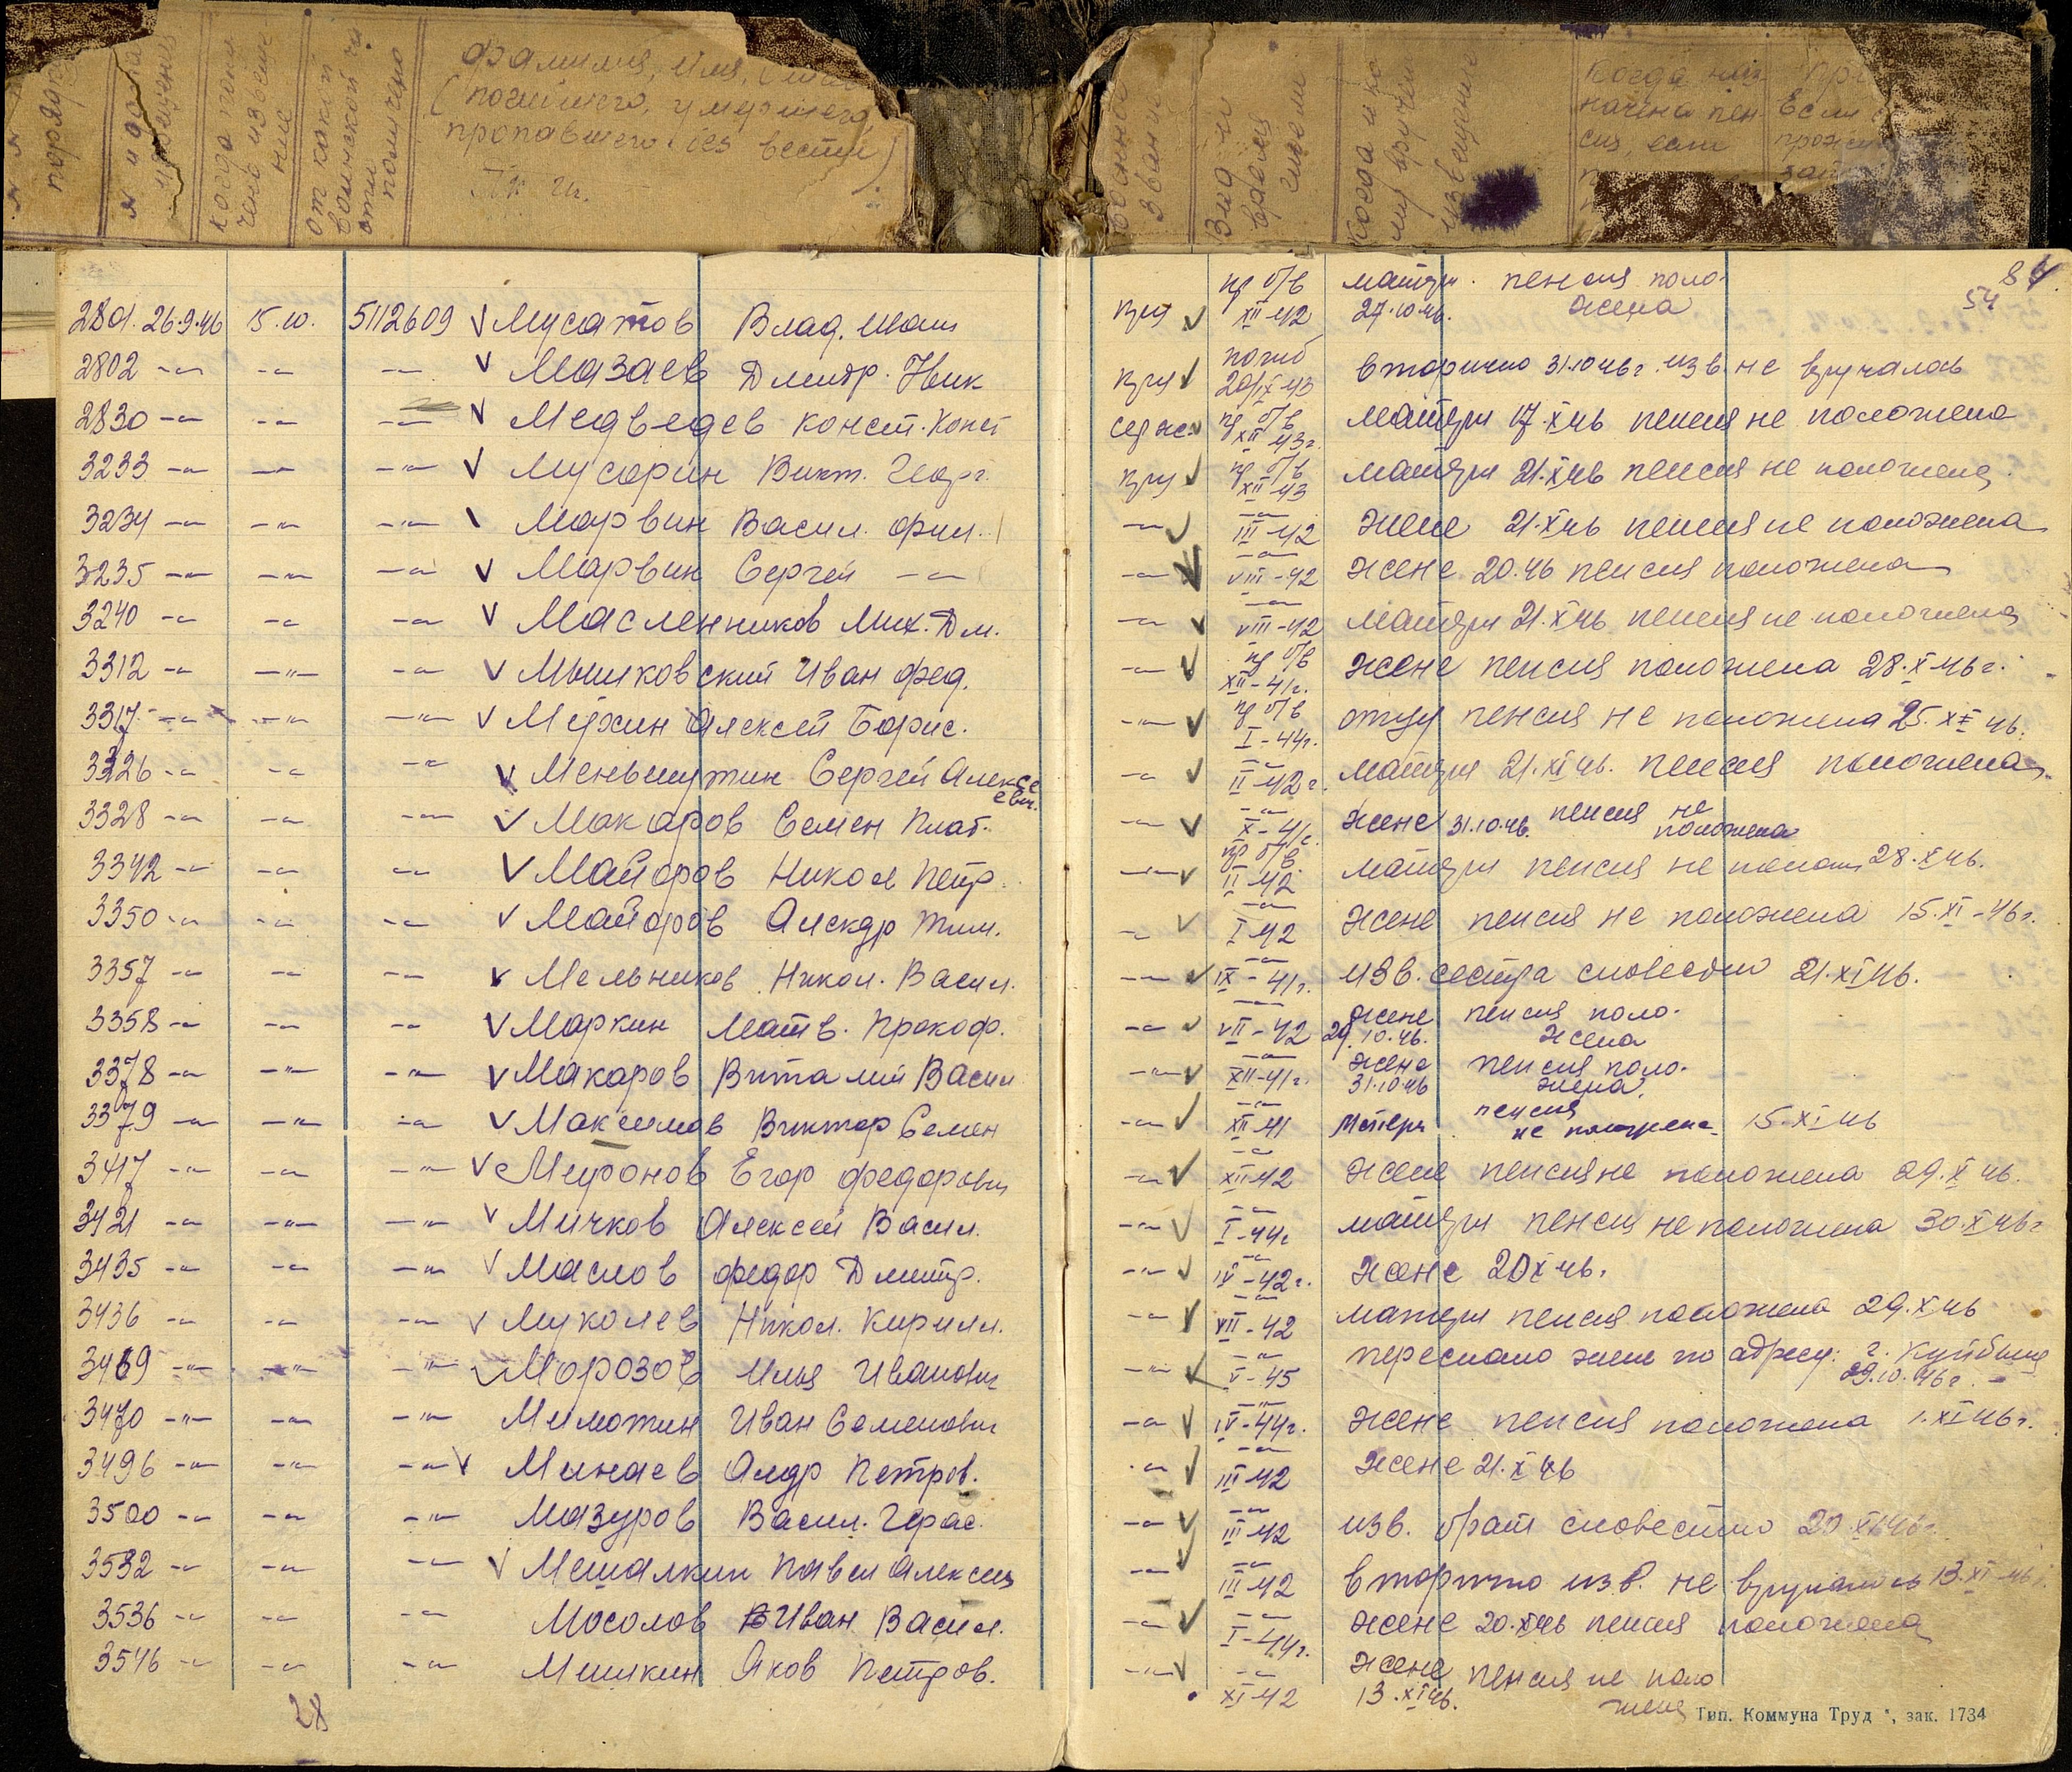 порядк
№ и дата извещения
когда полу
чено извеще
ние
от какой
воинской ча
сти
получено
фамилия, имя,
(погибшего, умершего,
пропавшего без вести)
звание
время
гибели
Когда и ко
му вручен
извещение
Когда наз
начена пен
сия, если
Если
прожи
84
54
2801. 26.9.46 15.10. 5112609 V Мусатов Влад. кра V пр б/в XII-42 матери 27.10.46. пенсия положена
2802 -"- -"- -"- V Мазаев Дмитр. Ник кра V погиб 20/IX 43 вторично 31.10 46г. изв. не вручалось
2830 -"- -"- -"- V Медведев Конст. Конст серже V пр б/в XII 43г. матери 17.X 46 пенсия не положена
3233 -"- -"- -"- V Мусорин Викт. Георг. кра V пр б/в XII 43 матери 21.X 46 пенсия не положена.
3234 -"- -"- -"- \ Марвин Васил. фил. -"- V -"- III-42 жене 21.X 46 пенсия не положена
3235 -"- -"- -"- V Марвин Сергей -"- -"- V -"- VIII-42 жене 20.46 пенсия положена
3240 -"- -"- -"- V Масленников Мих. Дм. -"- V -"- VIII-42 матери 21.X 46 пенсия не положена
3312 -"- -"- -"- V Мышковский Иван Фед. -"- V пр б/в XII-41г. жене пенсия положена 28.X 46г.
3317 -"- -"- -"- V Алексей Борис. -"- V пр б/в I-44г. отцу пенсия не положена 25.XI 46.
3326 -"- -"- -"- V Меньшутин Сергей Алексеевич. -"- V -"- II 42г. матери 21.XI 46. пенсия положена
3328 -"- -"- -"- V Макаров Семен Плат. -"- V -"- X-41г. жене 31.10.46. пенсия не положена
3342 -"- -"- -"- V Майоров Никол Петр. -"- V пр б/в II 42 матери пенсия не полож 28.X 46.
3350 -"- -"- -"- V Майоров Алексдр Тим. -"- V -"- I 42 жене пенсия не положена 15.XI-46г.
3357 -"- -"- -"- V Мельников Никол. Васил. -"- V -"- IX-41г. изв. сестра словесно 21.XI 46.
3358 -"- -"- -"- V Маркин Матв. Прокоф. -"- V -"- VII-42 жене 29.10.46. пенсия положена
3378 -"- -"- -"- V Макаров Виталий Васил -"- V -"- XII-41г. жене 31.10.46 пенсия положена.
3379 -"- -"- -"- V Максимов Виктор Семен -"- V -"- XII-41 Матери пенсия не положена. 15.XI 46
3417 -"- -"- -"- V Миронов Егор Федорович -"- V -"- XII 42 жене пенсия не положена 29.X 46.
3421 -"- -"- -"- V Мичков Алексей Васил. -"- V -"- I-44г матери пенсия не положена 30.X 46г
3435 -"- -"- -"- V Маслов Федор Дмитр. -"- V -"- IV-42г. жене 20 X 46.
3436 -"- -"- -"- V Муколев Никол. Кирилл. -"- V -"- VII-42 матери пенсия положена 29.X 46
3469 -"- -"- -"- V Морозов Илья Иванович -"- V -"- V-45 переслано жене по адресу: г. Куйбыш 29.10.46г.
3470 -"- -"- -"- Милютин Иван Семенович -"- V -"- IV-44г. жене пенсия положена 1.XI 46г.
3496 -"- -"- -"- V Минаев Алдр Петров. -"- V -"- III 42 жене 21.X 46
3500 -"- -"- -"- Мазуров Васил. Герас. -"- V -"- III 42 изв. брат словестно 20.XI 46г.
3532 -"- -"- -"- V Мешалкин Павел Алексеев -"- V -"- III 42 вторично изв. не вручалось 13.XI 46г.
3536 -"- -"- -"- Мосолов Иван Васил. -"- V -"- I-44г. жене 20.XI 46 пенсия положена
3546 -"- -"- -"- Мишкин Яков Петров. -"- V -"- XI-42 жене 13.XI 46. пенсия не положена
28
Тип. Коммуна Труд", зак. 1734